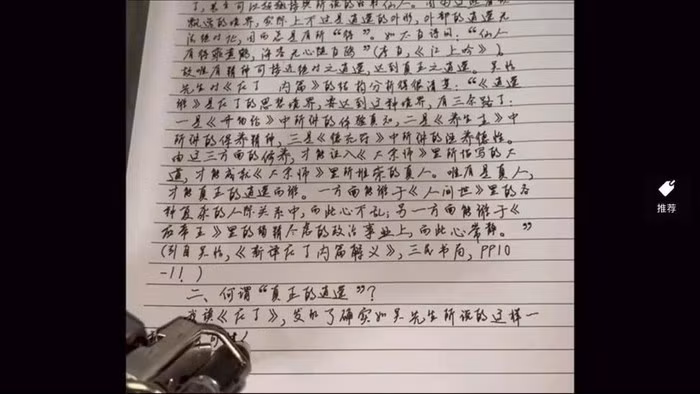 飘逸的境界，实际上不过是逍遥的外形，外部的逍遥无
法绝对化，因而总是有所“待”。如太白诗曰：“仙人
有待乘黄鹤，海客无心随白鸥”（李白，《江上吟》）。
故唯有精神可接近绝对之逍遥，达到真正之逍遥。吴怡
先生对《庄子 内篇》的结构分析得很清楚：“《逍遥
游》是庄子的思想境界，要达到这种境界，有三条路子：
一是《齐物论》中所讲的体验真知，二是《养生主》中
所讲的保养精神，三是《德充符》中所讲的涵养德性。
由这三方面的修养，才能证入《大宗师》里所描写的大
道，才能成就《大宗师》里所推崇的真人。唯有是真人，
才能真正的逍遥而游。一方面能游于《人间世》里的各
种复杂的人际关系中，而此心不乱；另一方面能游于《
应帝王》里的错综个意的政治事业上，而此心常静。”
（引自吴怡，《新译庄子内篇解义》，三民书局，PP10
-11）
二、何谓“真正的逍遥”？
我读《庄子》，发现了确实如吴先生所说的这样一
推荐